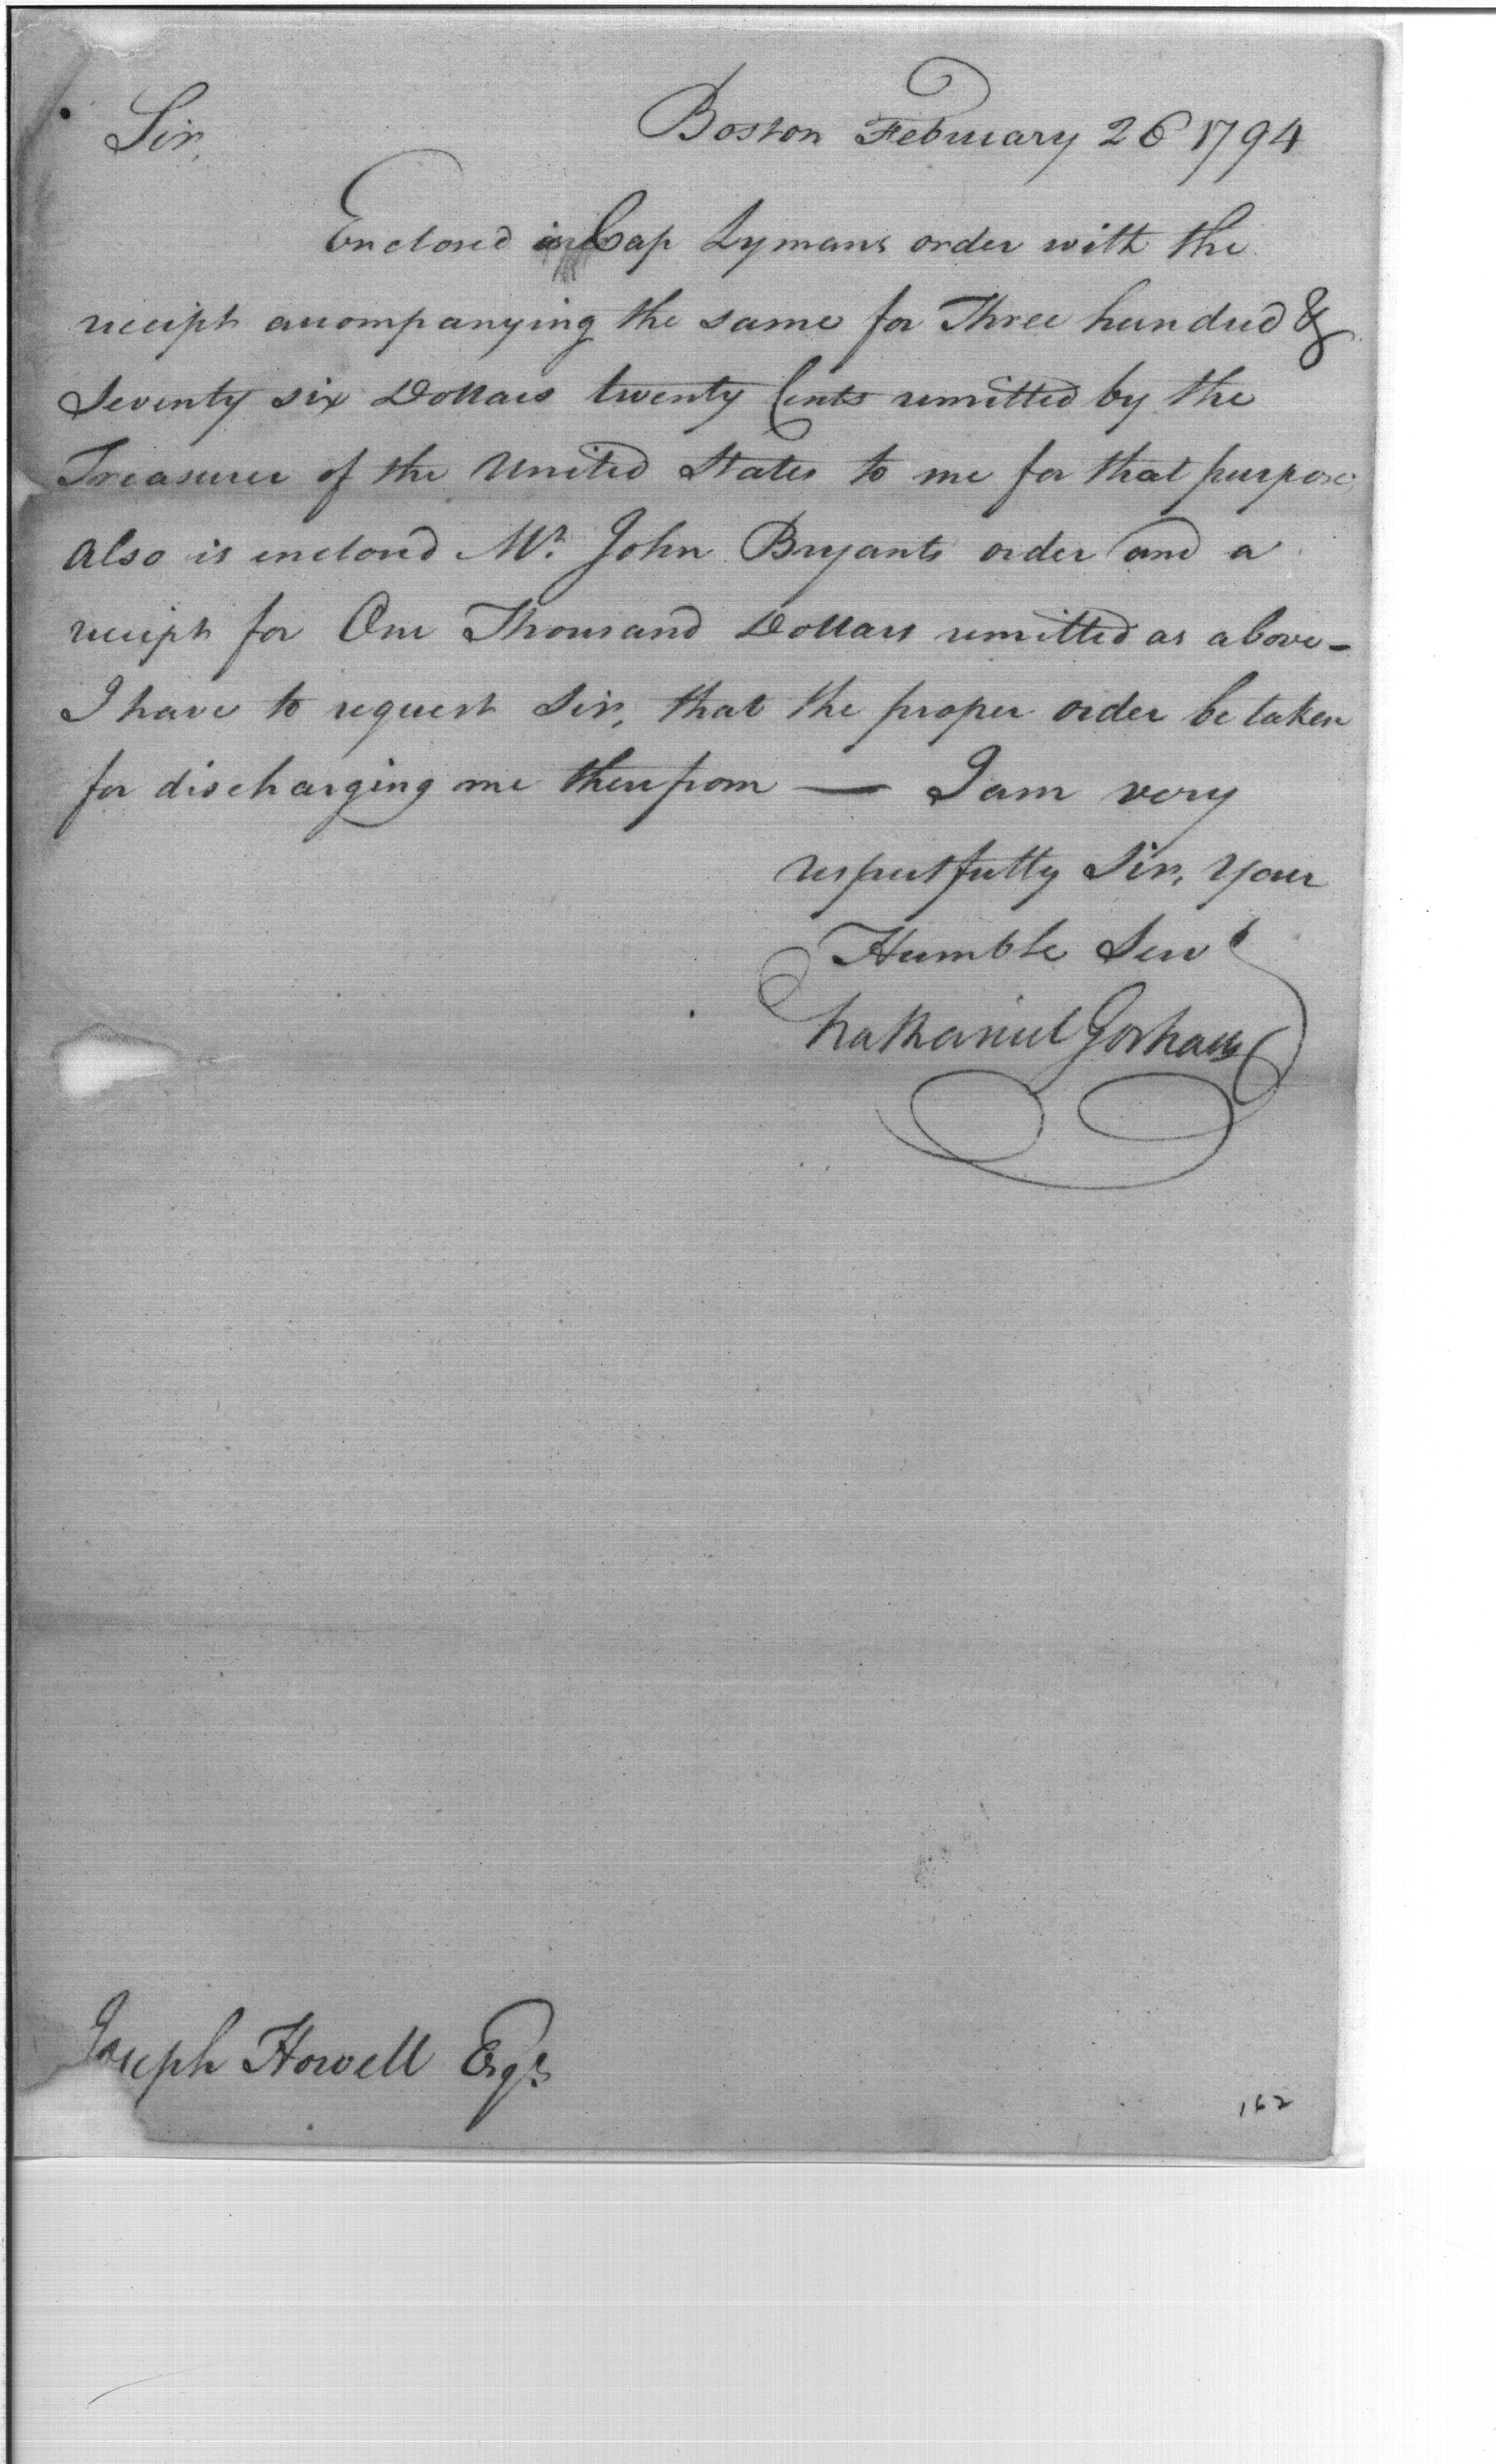 Sir, Boston February 26 1794
Enclosed is Cap Lymans order with the
receipt accompanying the same for Three hundred &
Seventy six Dollars twenty Cents remitted by the
Treasurer of the United States to me for that purpose
Also is enclosed Mr. John Bryants order and a
receipt for One Thousand Dollars remitted as above -
I have to request Sir, that the proper order be taken
for discharging me therefrom — I am very
respectfully Sir, Your
Humble Servt
Nathaniel Gorham
Joseph Howell Esqr
162